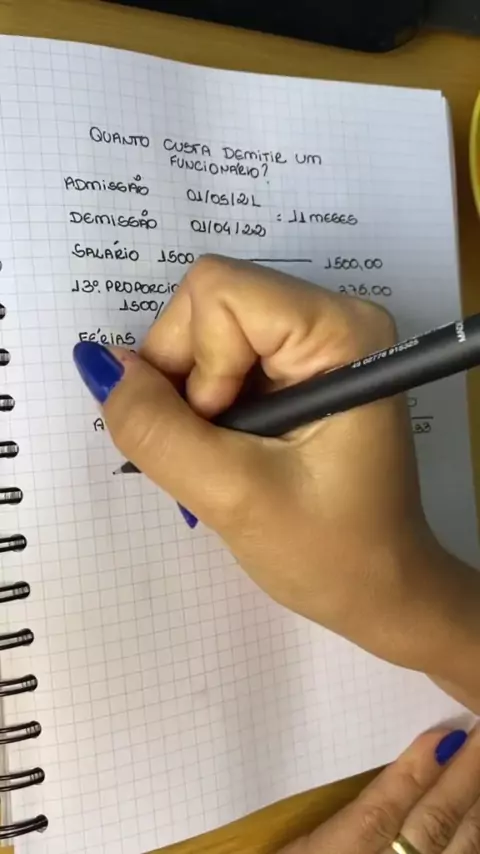 QUANTO CUSTA DEMITIR UM
FUNCIONÁRIO?
ADMISSÃO 01/05/21
DEMISSÃO 01/04/22 = 11 MESES
SALÁRIO 1500 1500,00
13º PROPORCIO 375,00
1500/
FÉRIAS
A
33